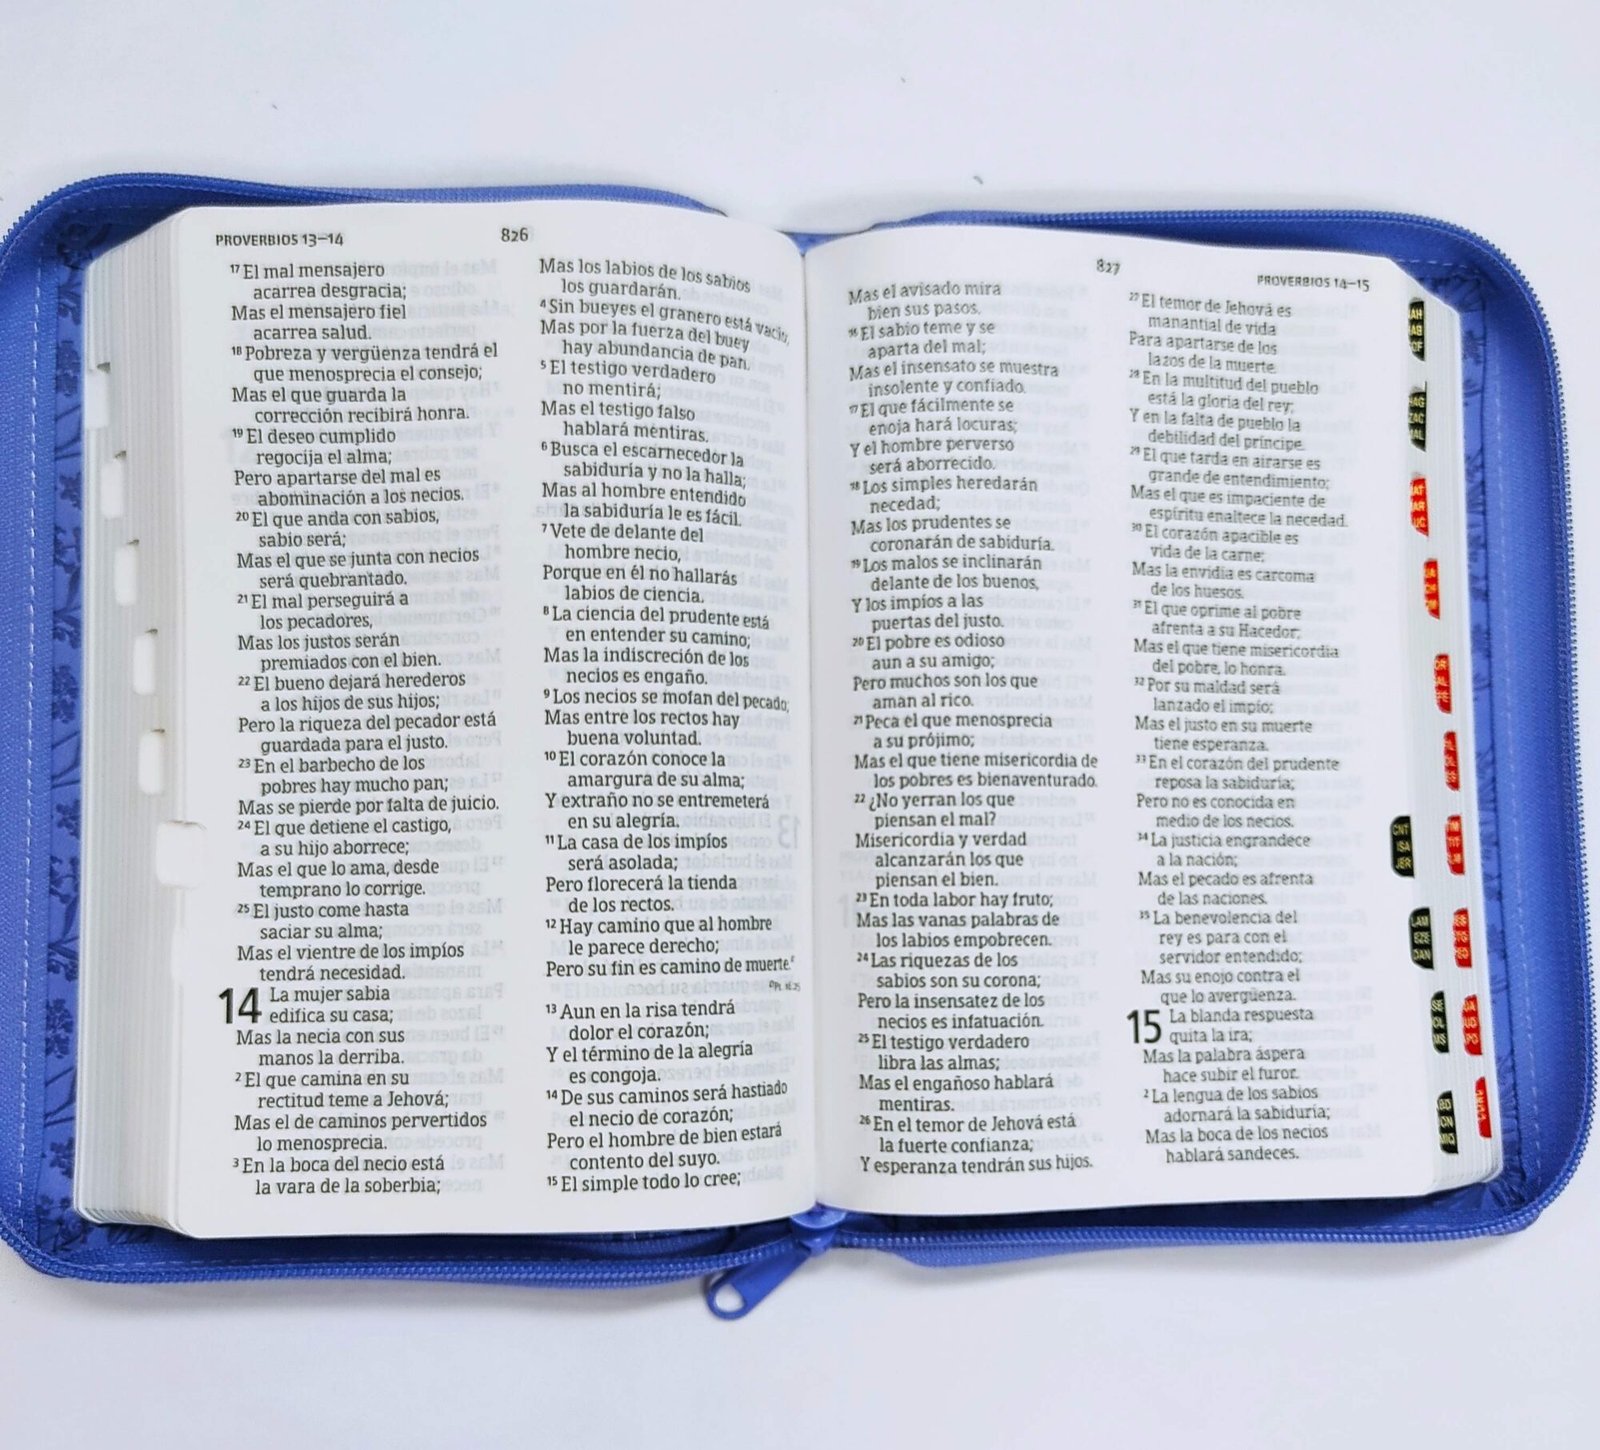 PROVERBIOS 13–14
826
17 El mal mensajero
acarrea desgracia;
Mas el mensajero fiel
acarrea salud.
18 Pobreza y vergüenza tendrá el
que menosprecia el consejo;
Mas el que guarda la
corrección recibirá honra.
19 El deseo cumplido
regocija el alma;
Pero apartarse del mal es
abominación a los necios.
20 El que anda con sabios,
sabio será;
Mas el que se junta con necios
será quebrantado.
21 El mal perseguirá a
los pecadores,
Mas los justos serán
premiados con el bien.
22 El bueno dejará herederos
a los hijos de sus hijos;
Pero la riqueza del pecador está
guardada para el justo.
23 En el barbecho de los
pobres hay mucho pan;
Mas se pierde por falta de juicio.
24 El que detiene el castigo,
a su hijo aborrece;
Mas el que lo ama, desde
temprano lo corrige.
25 El justo come hasta
saciar su alma;
Mas el vientre de los impíos
tendrá necesidad.
14 La mujer sabia
edifica su casa;
Mas la necia con sus
manos la derriba.
2 El que camina en su
rectitud teme a Jehová;
Mas el de caminos pervertidos
lo menosprecia.
3 En la boca del necio está
la vara de la soberbia;
Mas los labios de los sabios
los guardarán.
4 Sin bueyes el granero está vacío;
Mas por la fuerza del buey
hay abundancia de pan.
5 El testigo verdadero
no mentirá;
Mas el testigo falso
hablará mentiras.
6 Busca el escarnecedor la
sabiduría y no la halla;
Mas al hombre entendido
la sabiduría le es fácil.
7 Vete de delante del
hombre necio,
Porque en él no hallarás
labios de ciencia.
8 La ciencia del prudente está
en entender su camino;
Mas la indiscreción de los
necios es engaño.
9 Los necios se mofan del pecado;
Mas entre los rectos hay
buena voluntad.
10 El corazón conoce la
amargura de su alma;
Y extraño no se entremeterá
en su alegría.
11 La casa de los impíos
será asolada;
Pero florecerá la tienda
de los rectos.
12 Hay camino que al hombre
le parece derecho;
Pero su fin es camino de muerte.
Pr. 16.25
13 Aun en la risa tendrá
dolor el corazón;
Y el término de la alegría
es congoja.
14 De sus caminos será hastiado
el necio de corazón;
Pero el hombre de bien estará
contento del suyo.
15 El simple todo lo cree;
827
PROVERBIOS 14–15
Mas el avisado mira
bien sus pasos.
16 El sabio teme y se
aparta del mal;
Mas el insensato se muestra
insolente y confiado.
17 El que fácilmente se
enoja hará locuras;
Y el hombre perverso
será aborrecido.
18 Los simples heredarán
necedad;
Mas los prudentes se
coronarán de sabiduría.
19 Los malos se inclinarán
delante de los buenos,
Y los impíos a las
puertas del justo.
20 El pobre es odioso
aun a su amigo;
Pero muchos son los que
aman al rico.
21 Peca el que menosprecia
a su prójimo;
Mas el que tiene misericordia de
los pobres es bienaventurado.
22 ¿No yerran los que
piensan el mal?
Misericordia y verdad
alcanzarán los que
piensan el bien.
23 En toda labor hay fruto;
Mas las vanas palabras de
los labios empobrecen.
24 Las riquezas de los
sabios son su corona;
Pero la insensatez de los
necios es infatuación.
25 El testigo verdadero
libra las almas;
Mas el engañoso hablará
mentiras.
26 En el temor de Jehová está
la fuerte confianza;
Y esperanza tendrán sus hijos.
27 El temor de Jehová es
manantial de vida
Para apartarse de los
lazos de la muerte.
28 En la multitud del pueblo
está la gloria del rey;
Y en la falta de pueblo la
debilidad del príncipe.
29 El que tarda en airarse es
grande de entendimiento;
Mas el que es impaciente de
espíritu enaltece la necedad.
30 El corazón apacible es
vida de la carne;
Mas la envidia es carcoma
de los huesos.
31 El que oprime al pobre
afrenta a su Hacedor;
Mas el que tiene misericordia
del pobre, lo honra.
32 Por su maldad será
lanzado el impío;
Mas el justo en su muerte
tiene esperanza.
33 En el corazón del prudente
reposa la sabiduría;
Pero no es conocida en
medio de los necios.
34 La justicia engrandece
a la nación;
Mas el pecado es afrenta
de las naciones.
35 La benevolencia del
rey es para con el
servidor entendido;
Mas su enojo contra el
que lo avergüenza.
15 La blanda respuesta
quita la ira;
Mas la palabra áspera
hace subir el furor.
2 La lengua de los sabios
adornará la sabiduría;
Mas la boca de los necios
hablará sandeces.
CNT
ISA
JER